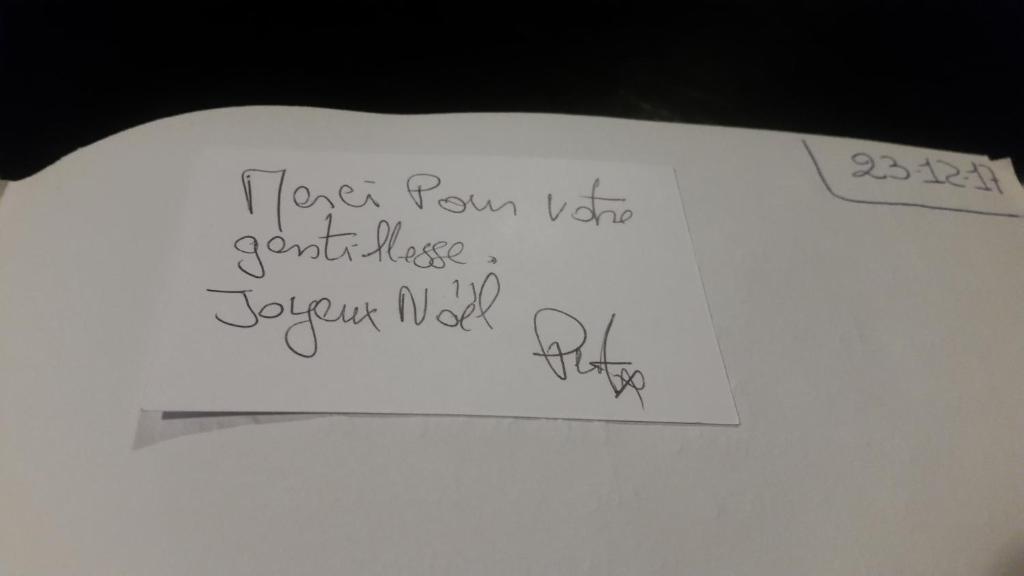 23-12-17
Merci Pour votre
gentillesse.
Joyeux Noël